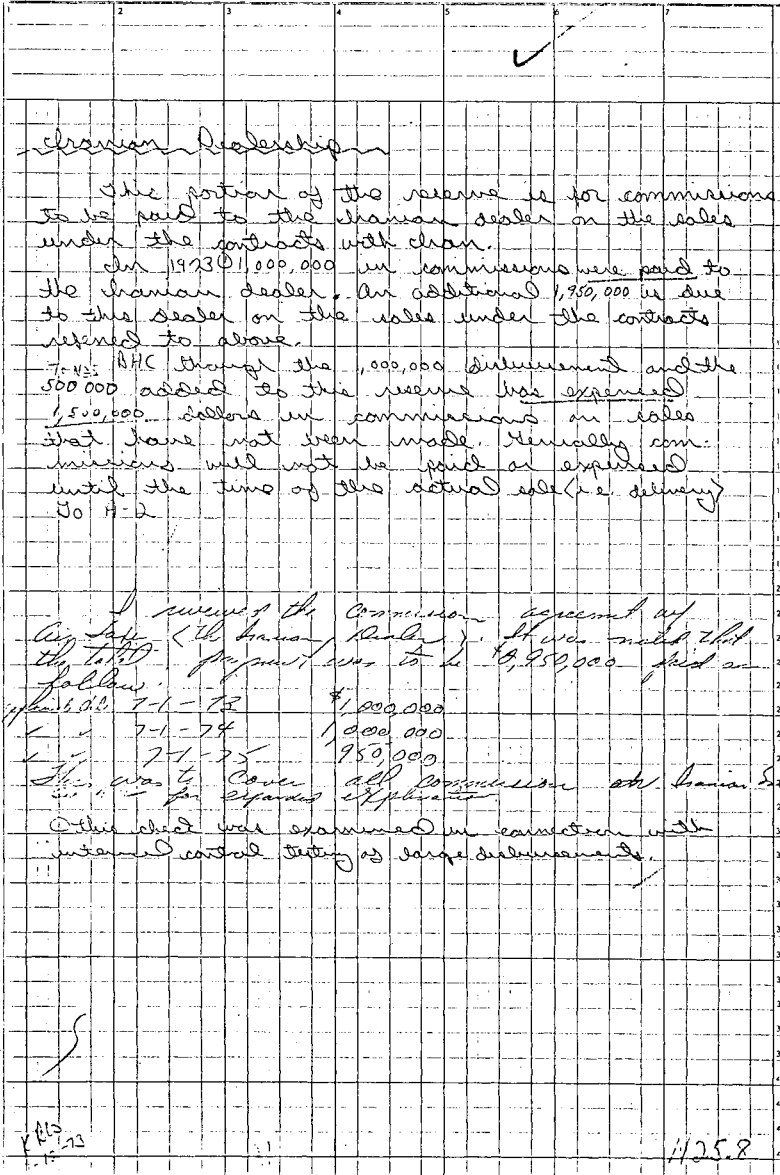 1 2 3 4 5 6 7
Iranian Dealership
This portion of the reserve is for commissions
to be paid to the Iranian dealer on the sales
under the contracts with Iran.
In 1973 ① 1,000,000 in commissions were paid to
the Iranian dealer. An additional 1,950,000 is due
to this dealer on the sales under the contracts
referred to above.
BHC through the ,000,000 disbursement and the
500 000 added to this reserve has expensed
1,500,000 dollars in commissions on sales
that have not been made. com-
missions will not be paid or expensed
until the time of the actual sale (i.e. delivery)
To A-2
I reviewed the commission agreement w/
Air Taxi (the Iranian Dealer). It was noted that
the total payment was to be ,950,000 paid as
follow:
7-1-73 $1,000,000
✓ ✓ 7-1-74 1,000,000
✓ ✓ 7-1-75 950,000
This was to cover all commission on Iranian
for expanded explanation
① this check was examined in connection with
internal control testing of large disbursements.
1125.8